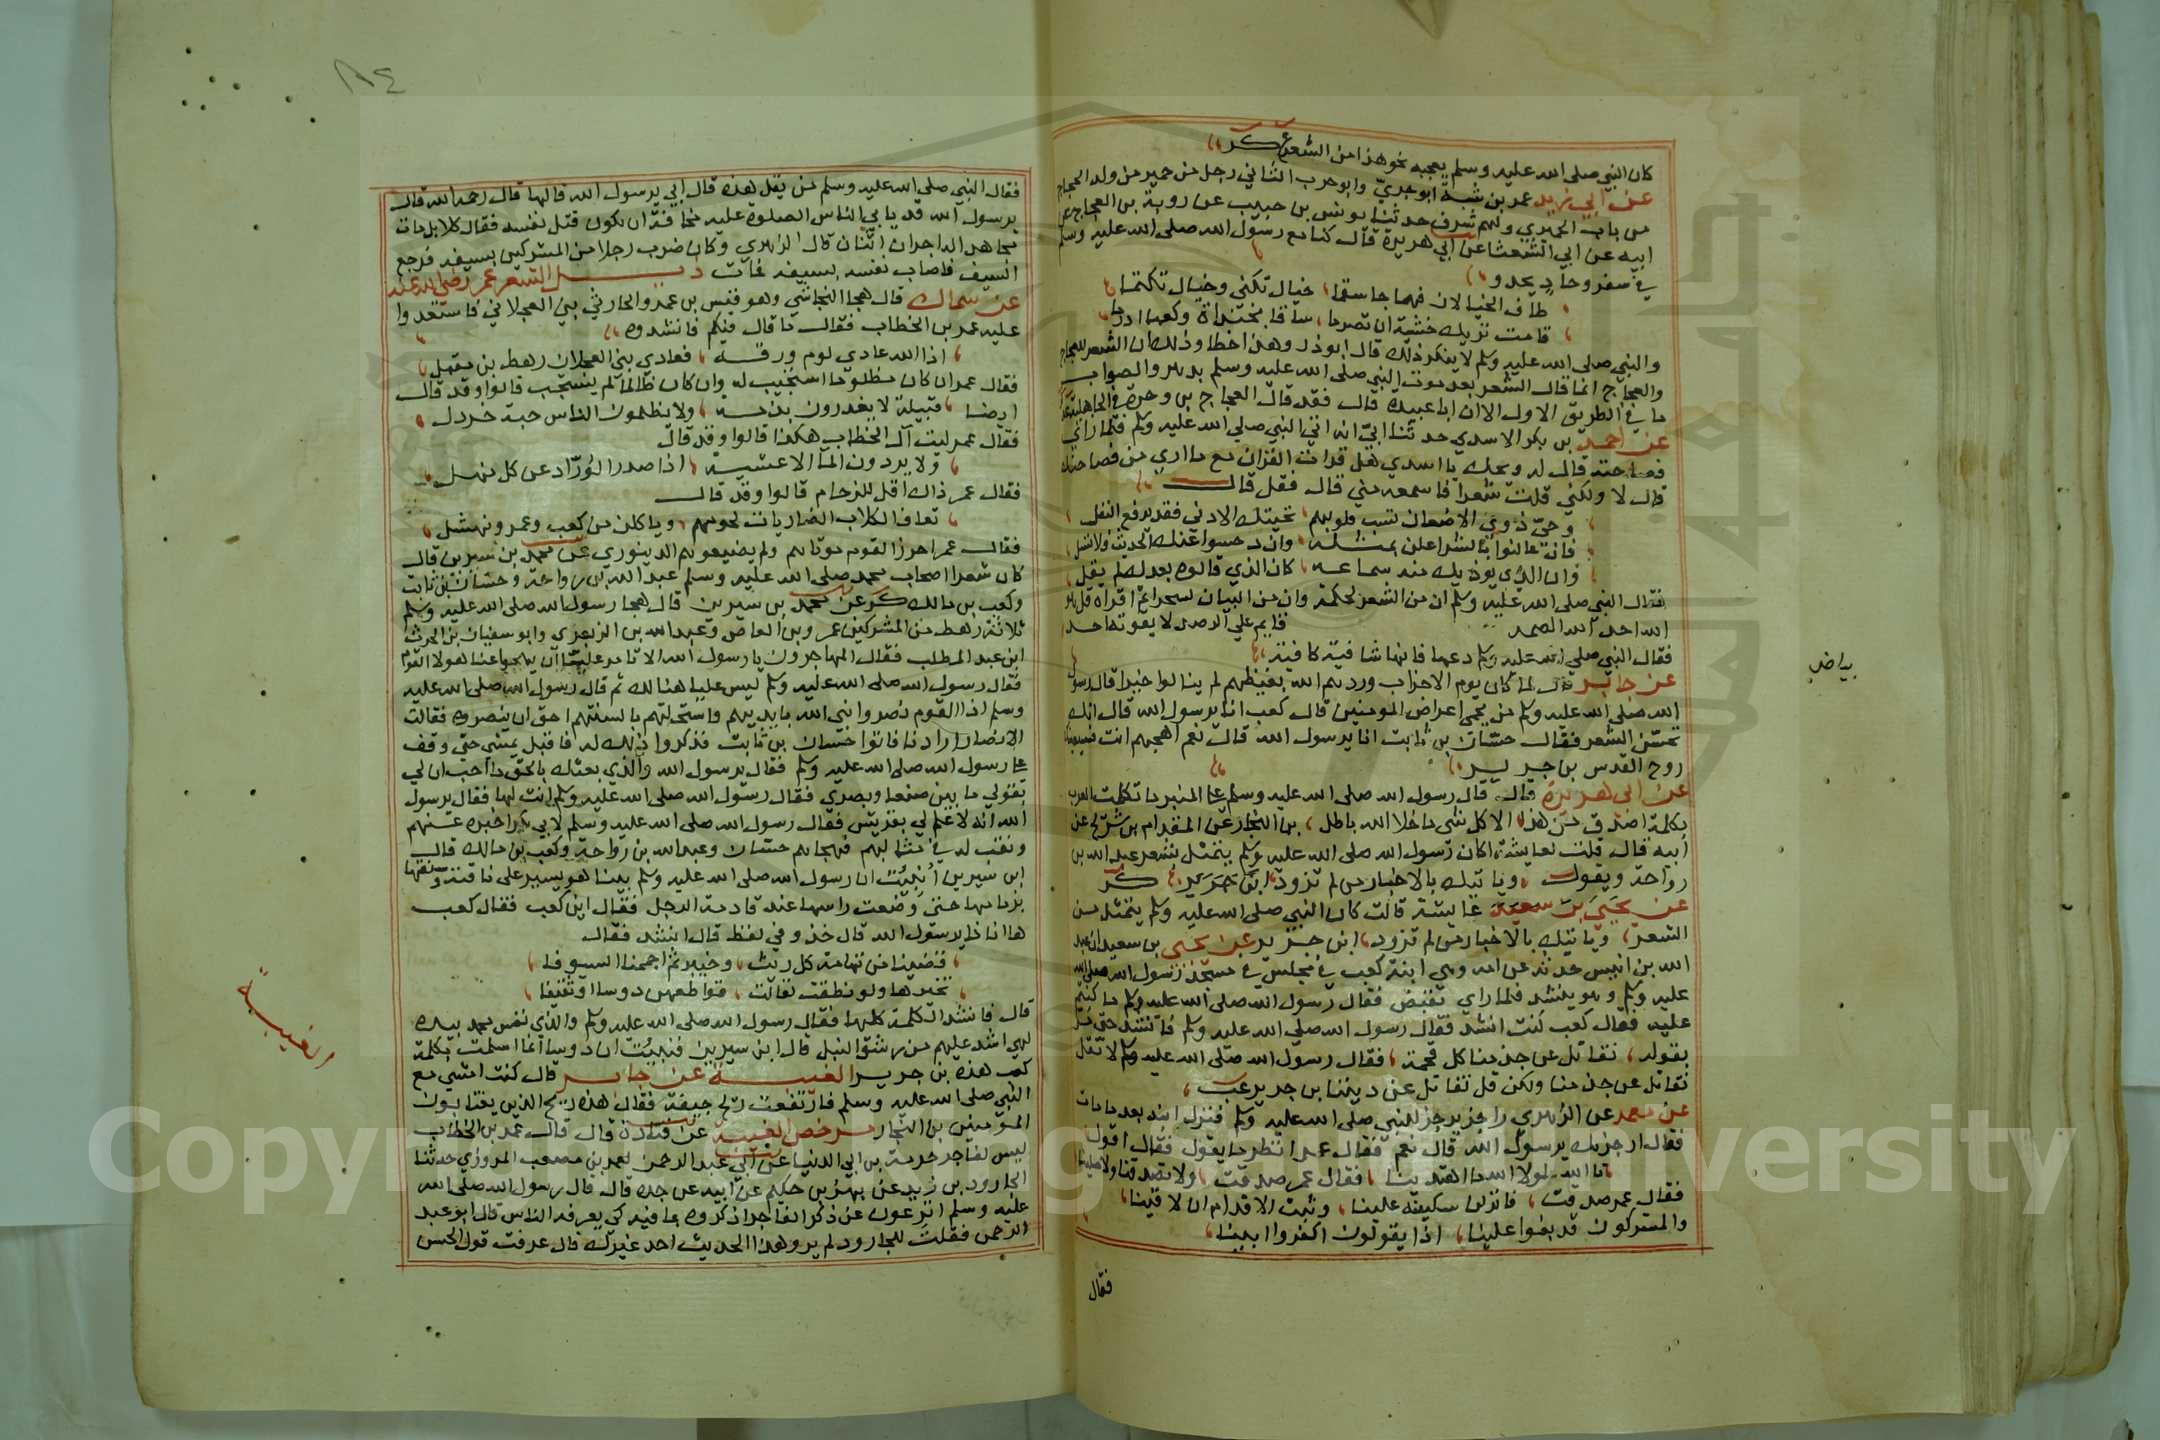 كان النبي صلى الله عليه وسلم يعجبه نحو هذا من الشعر كر
عن ابي زيد عمر بن شبة ابو جري وابو حرب الثاني رجل من حمير من ولد الحجاج
من باب الحميري ولهم شرف حدثنا يونس بن حبيب عن روبة بن العجاج عن
ابيه عن ابي الشعثا عن ابي هريرة قال كنا مع رسول الله صلى الله عليه وسلم
في سفر وحاد يحدو
طاف الخيالان فهاجا سقما خيال تكنى وخيال تكتما
قامت تريك خشية ان تصرما ساقا بخنداة وكعبا ادرما
والنبي صلى الله عليه وسلم لا ينكر ذلك قال ابوذر وهذا خطا وذلك ان الشعر للعجاج
والعجاج انما قال الشعر بعد موت النبي صلى الله عليه وسلم بدهر والصواب
ما في الطريق الاول الا ان ابا عبيدة قال فقد قال العجاج بن وحرة في الجاهلية
عن احمد بن بكر الاسدي حدثنا ابي انه اتى النبي صلى الله عليه وسلم فلما راى
فصاحته قال له ويحك يا اسدي هل قرات القران مع ما ارى من فصاحتك
قال لا ولكني قلت شعرا فاسمعه مني قال فقل قال
وحي ذوي الاضعان تسب قلوبهم تحيتك الادنى فقد يرفع النغل
فان عالنوا بالشر اعلن بمثله وان دحسوا عنك الحديث فلا تسل
وان الذي يوذيك منه سماعه كان الذي قالوه بعدك لم يقل
فقال النبي صلى الله عليه وسلم ان من الشعر لحكمة وان من البيان لسحرا ثم اقراه قل هو
الله احد الله الصمد قايم على الرصد لا يفوته احد
فقال النبي صلى الله عليه وسلم دعها فانها شافية كافية
عن جابر قال لما كان يوم الاحزاب وردهم الله بغيظهم لم ينالوا خيرا قال رسول
الله صلى الله عليه وسلم من يحمي اعراض المومنين قال كعب انا يرسول الله قال انك
تحسن الشعر فقال حسان بن ثابت انا يرسول الله قال نعم اهجهم انت فسيعينك
روح القدس بن جرير
عن ابي هريرة قال قال رسول الله صلى الله عليه وسلم على المنبر ما تكلمت العرب
بكلمة اصدق من هذا الا كل شي ما خلا الله باطل بن النجار عن المقدام بن شريح عن
ابيه قال قلت لعايشة اكان رسول الله صلى الله عليه وسلم يتمثل بشعر عبد الله بن
رواحة ويقول وياتيك بالاخبار من لم تزود ابن جرير كر
عن يحيى بن سعيد عايشة قالت كان النبي صلى الله عليه وسلم يتمثل من
الشعر وياتيك بالاخبار من لم تزود ابن جرير عن يحيى بن سعيد ان عبد
الله بن انيس حدثه عن امه وهي ابنة كعب في مجلس في مسجد رسول الله صلى الله
عليه وسلم وهو ينشد فلما راى تقبض فقال رسول الله صلى الله عليه وسلم ما كنتم
عليه فقال كعب كنت انشد فقال رسول الله صلى الله عليه وسلم فانشد حتى مر
بقوله نقاتل عن جذمنا كل فخمة فقال رسول الله صلى الله عليه وسلم لا تقل
نقاتل عن جذمنا ولكن قل نقاتل عن ديننا بن جرير عب
عن معمر عن الزهري راجز يرجز للنبي صلى الله عليه وسلم فنزل ابنه بعد ما مات
فقال ارجز بك يرسول الله قال نعم فقال عمر انظر ما يقول فقال اقول
تا الله لولا الله ما اهتدينا فقال عمر صدقت ولا تصدقنا ولا صلينا
فقال عمر صدقت فانزلن سكينة علينا وثبت الاقدام ان لاقينا
والمشركون قد بغوا علينا اذا يقولون اكفروا ابينا
فقال
بياض
٨٤
فقال النبي صلى الله عليه وسلم من يقل هذه قال ابي يرسول الله قالها قال رحمه الله قال
يرسول الله قد يابى الناس الصلوة عليه مخافة ان يكون قتل نفسه فقال كلا بل مات
مجاهدا له اجران اثنان قال الزهري وكان ضرب رجلا من المشركين بسيفه فرجع
السيف فاصاب نفسه بسيفه فمات ذيل الشعر عمر رضي الله عنه
عن سماك قال هجا النجاشي وهو قيس بن عمرو الحارثي بني العجلان فاستعدوا
عليه عمر بن الخطاب فقال ما قال فيكم فانشدوه
اذا الله عادى لوم ورقة فعادى بني العجلان رهط بن مقبل
فقال عمر ان كان مظلوما استجيب له وان كان ظالما لم يستجب قالوا وقد قال
ايضا قبيلة لا يغدرون بذمة ولا يظلمون الناس حبة خردل
فقال عمر ليت آل الخطاب هكذا قالوا وقد قال
ولا يردون الما الا عشية اذا صدر الوراد عن كل منهل
فقال عمر ذاك اقل للزحام قالوا وقد قال
تعاف الكلاب الضاريات لحومهم وياكلن من كعب وعمرو ونهشل
فقال عمر احرز القوم موتاهم ولم يضيعوهم الدينوري عن محمد بن سيرين قال
كان شعرا اصحاب محمد صلى الله عليه وسلم عبد الله بن رواحة وحسان بن ثابت
وكعب بن مالك كر عن محمد بن سيرين قال هجا رسول الله صلى الله عليه وسلم
ثلاثة رهط من المشركين عمرو بن العاص وعبد الله بن الزبعرى وابو سفيان بن الحرث
ابن عبد المطلب فقال المهاجرون يا رسول الله الا تامر عليا ان يهجو عنا هولا القوم
فقال رسول الله صلى الله عليه وسلم ليس عليا هنالك ثم قال رسول الله صلى الله عليه
وسلم اذا القوم نصروا نبي الله بايديهم واسلحتهم بالسنتهم احق ان ينصروه فقالت
الانصار ارادنا فاتوا حسان بن ثابت فذكروا ذلك له فاقبل يمشي حتى وقف
على رسول الله صلى الله عليه وسلم فقال يرسول الله والذي بعثك بالحق ما احب ان لي
بقولي ما بين صنعا وبصرى فقال رسول الله صلى الله عليه وسلم انت لها فقال يرسول
الله انه لا علم لي بقريش فقال رسول الله صلى الله عليه وسلم لابي بكر اخبره عنهم
ونقب له في مثالبهم فهجاهم حسان وعبد الله بن رواحة وكعب بن مالك قال
ابن سيرين انبئت ان رسول الله صلى الله عليه وسلم بينا هو يسير على ناقته وشنقها
بزمامها حتى وضعت راسها عند قادمة الرحل فقال اين كعب فقال كعب
ها انا ذا يرسول الله قال خذ وفي لفظ قال انشد فقال
قضينا من تهامة كل ريب وخيبر ثم اجممنا السيوفا
نخبرها ولو نطقت لقالت قواطعهن دوسا او ثقيفا
قال فانشد الكلمة كلها فقال رسول الله صلى الله عليه وسلم والذي نفس محمد بيده
لهي اشد عليهم من رشق النبل قال ابن سيرين فنبئت ان دوسا انما اسلمت بكلمة
كعب هذه بن جرير الغيبة عن جابر قال كنت امشي مع
النبي صلى الله عليه وسلم فارتفعت ريح جيفة فقال هذه ريح الذين يغتابون
المومنين بن النجار مرخص الغيبة عن قتادة قال قال عمر بن الخطاب
ليس لفاجر حرمة بن ابي الدنيا عن ابي عبد الرحمن نعمر بن مصعب المروزي حدثنا
الجارود بن زيد عن بهز بن حكيم عن ابيه عن جده قال قال رسول الله صلى الله
عليه وسلم اترعون عن ذكر الفاجر اذكروه بما فيه كي يعرفه الناس قال ابو عبد
الرحمن فقلت للجارود لم يرو هذا الحديث احد غيرك قال عرفت قول الحسن
الغيبة
Copyright © King Saud University